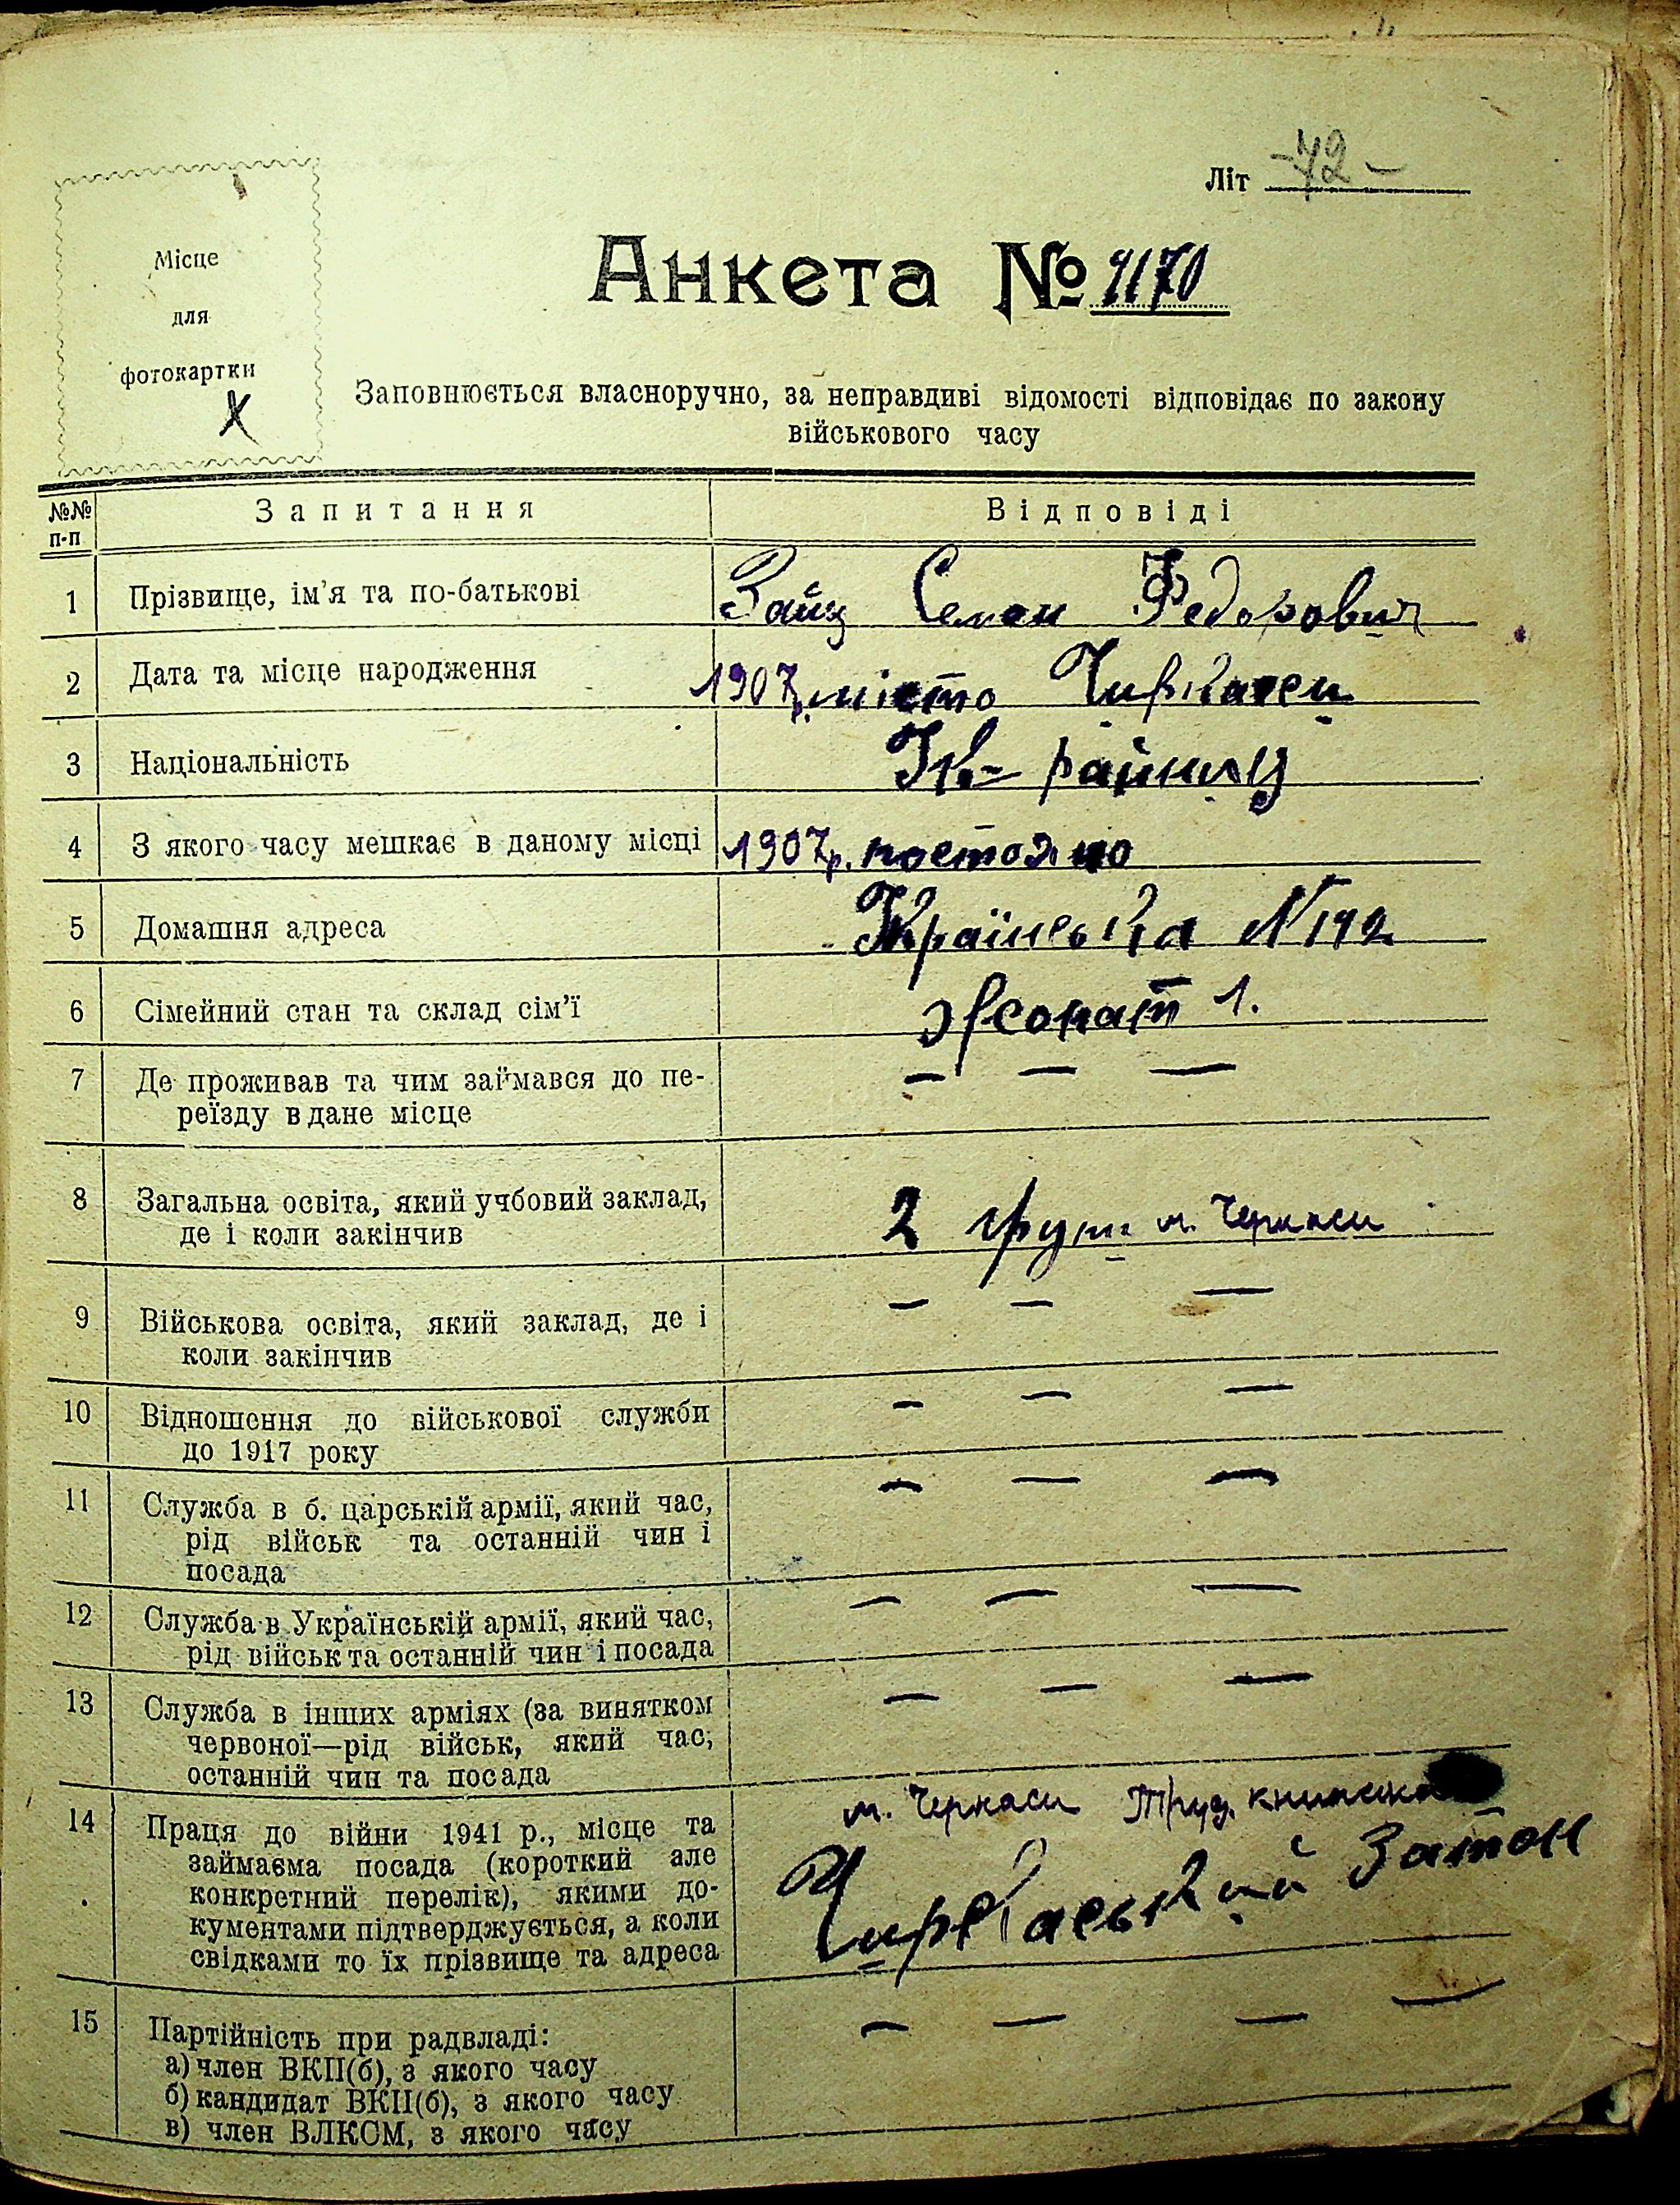 Літ -72-
Місце
для
фотокартки
X
Анкета № 4170
Заповнюється власноручно, за неправдиві відомості відповідає по закону
військового часу
№№ п-п Запитання Відповіді
1 Прізвище, ім'я та по-батькові Заїц Семен Федорович
2 Дата та місце народження 1907р. місто Чиркаси
3 Національність
4 З якого часу мешкає в даному місці 1907р. постояно
5 Домашня адреса Українська N 142
6 Сімейний стан та склад сім'ї жонат 1.
7 Де проживав та чим займався до пе- — — —
реїзду в дане місце
8 Загальна освіта, який учбовий заклад, 2 груп м. Черкаси
де і коли закінчив
9 Військова освіта, який заклад, де і — — —
коли закінчив
10 Відношення до військової служби — — —
до 1917 року
11 Служба в б. царській армії, який час, — — —
рід військ та останній чин і
посада
12 Служба в Українській армії, який час, — — —
рід військ та останній чин і посада
13 Служба в інших арміях (за винятком — — —
червоної—рід військ, який час,
останній чин та посада
14 Праця до війни 1941 р., місце та м. Черкаси Труд. книжка
займаєма посада (короткий але Чиркаський Затон
конкретний перелік), якими до-
кументами підтверджується, а коли
свідками то їх прізвище та адреса
15 Партійність при радвладі: — — — —
а) член ВКП(б), з якого часу
б) кандидат ВКП(б), з якого часу
в) член ВЛКСМ, з якого часу